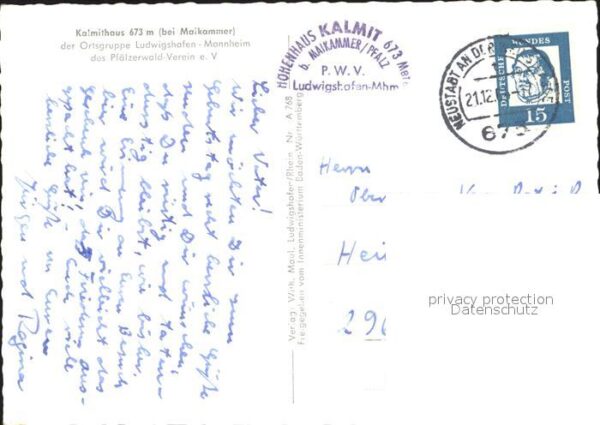 Kalmithaus 673 m (bei Maikammer)
der Ortsgruppe Ludwigshafen-Mannheim
des Pfälzerwald-Verein e. V
HÖHENHAUS KALMIT 673 Meter
b. MAIKAMMER/PFALZ
P. W. V.
Ludwigshafen-Mhm
NEUSTADT AN DER
21.12.
673
DEUTSCHE BUNDES POST
15
Lieber Vater!
Wir möchten Dir zum
Geburtstag recht herzliche Grüße
und Dir wünschen,
daß Du rüstig und taten-
durstig bleibst, wie bisher.
Eine an Euren Besuch
hier wird Dir vielleicht das
Geschenk sein, das
gepackt hat! Euch viele
herzliche Grüße an Euren
Jürgen und Regina
Verlag: Wirk. Maul, Ludwigshafen/Rhein Nr. A 768
Freigegeben vom Innenministerium Baden-Württemberg
Herrn
Ober
Hei
296
privacy protection
Datenschutz